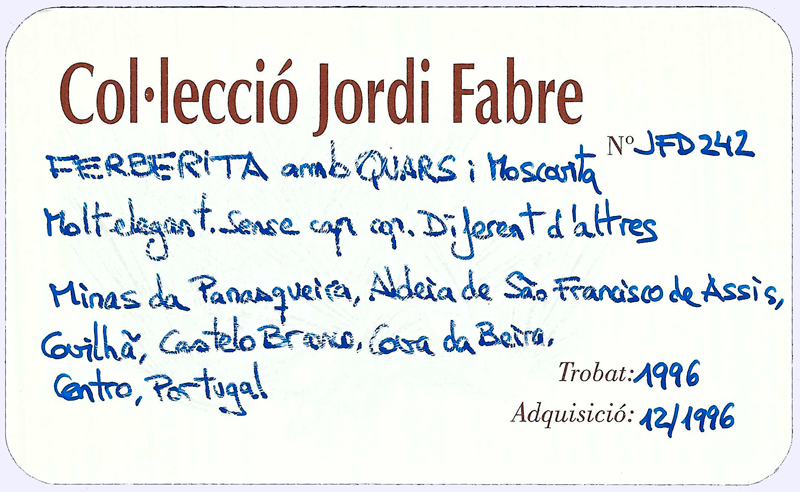 Col·lecció Jordi Fabre
Nº JFD242
FERBERITA amb QUARS i Moscovita
Molt elegant. Sense cap cop. Diferent d'altres
Minas da Panasqueira, Aldeia de São Francisco de Assis,
Covilhã, Castelo Branco, Cova da Beira,
Centro, Portugal
Trobat: 1996
Adquisició: 12/1996